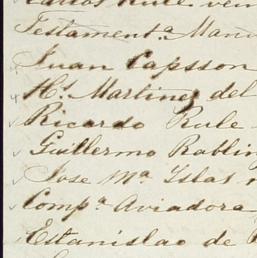 Carlos Rule ven
Testament.ª Manu
Juan Capsson
H.s Martinez del
Ricardo Rule
Guillermo Rablin
Jose M.ª Islas
Comp.ª Aviadora
Estanislao de